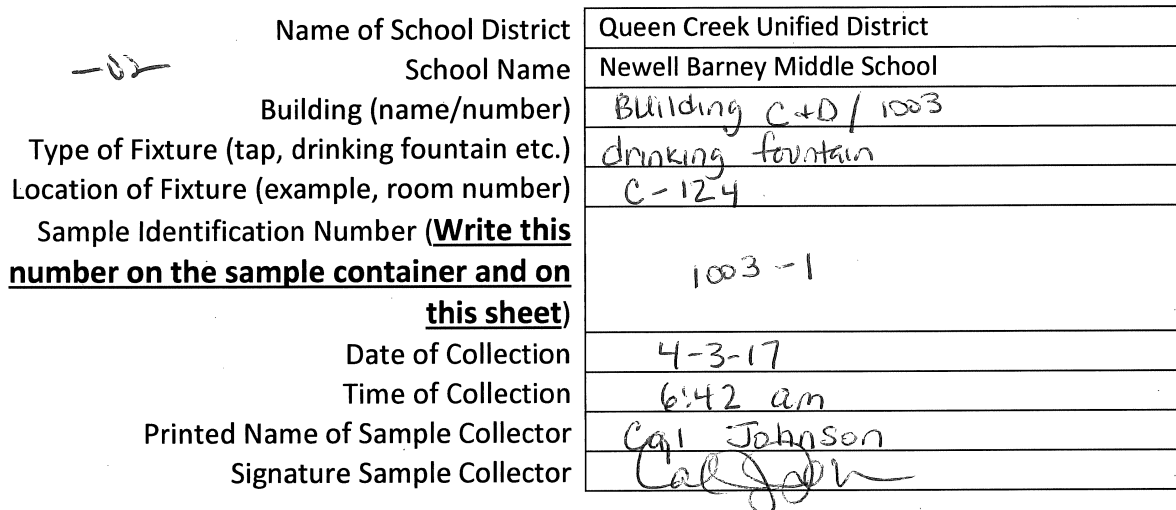 Name of School District Queen Creek Unified District
-02 School Name Newell Barney Middle School
Building (name/number) Building C+D / 1003
Type of Fixture (tap, drinking fountain etc.) drinking fountain
Location of Fixture (example, room number) C-124
Sample Identification Number (Write this
number on the sample container and on
this sheet) 1003-1
Date of Collection 4-3-17
Time of Collection 6:42 am
Printed Name of Sample Collector Cal Johnson
Signature Sample Collector Cal John